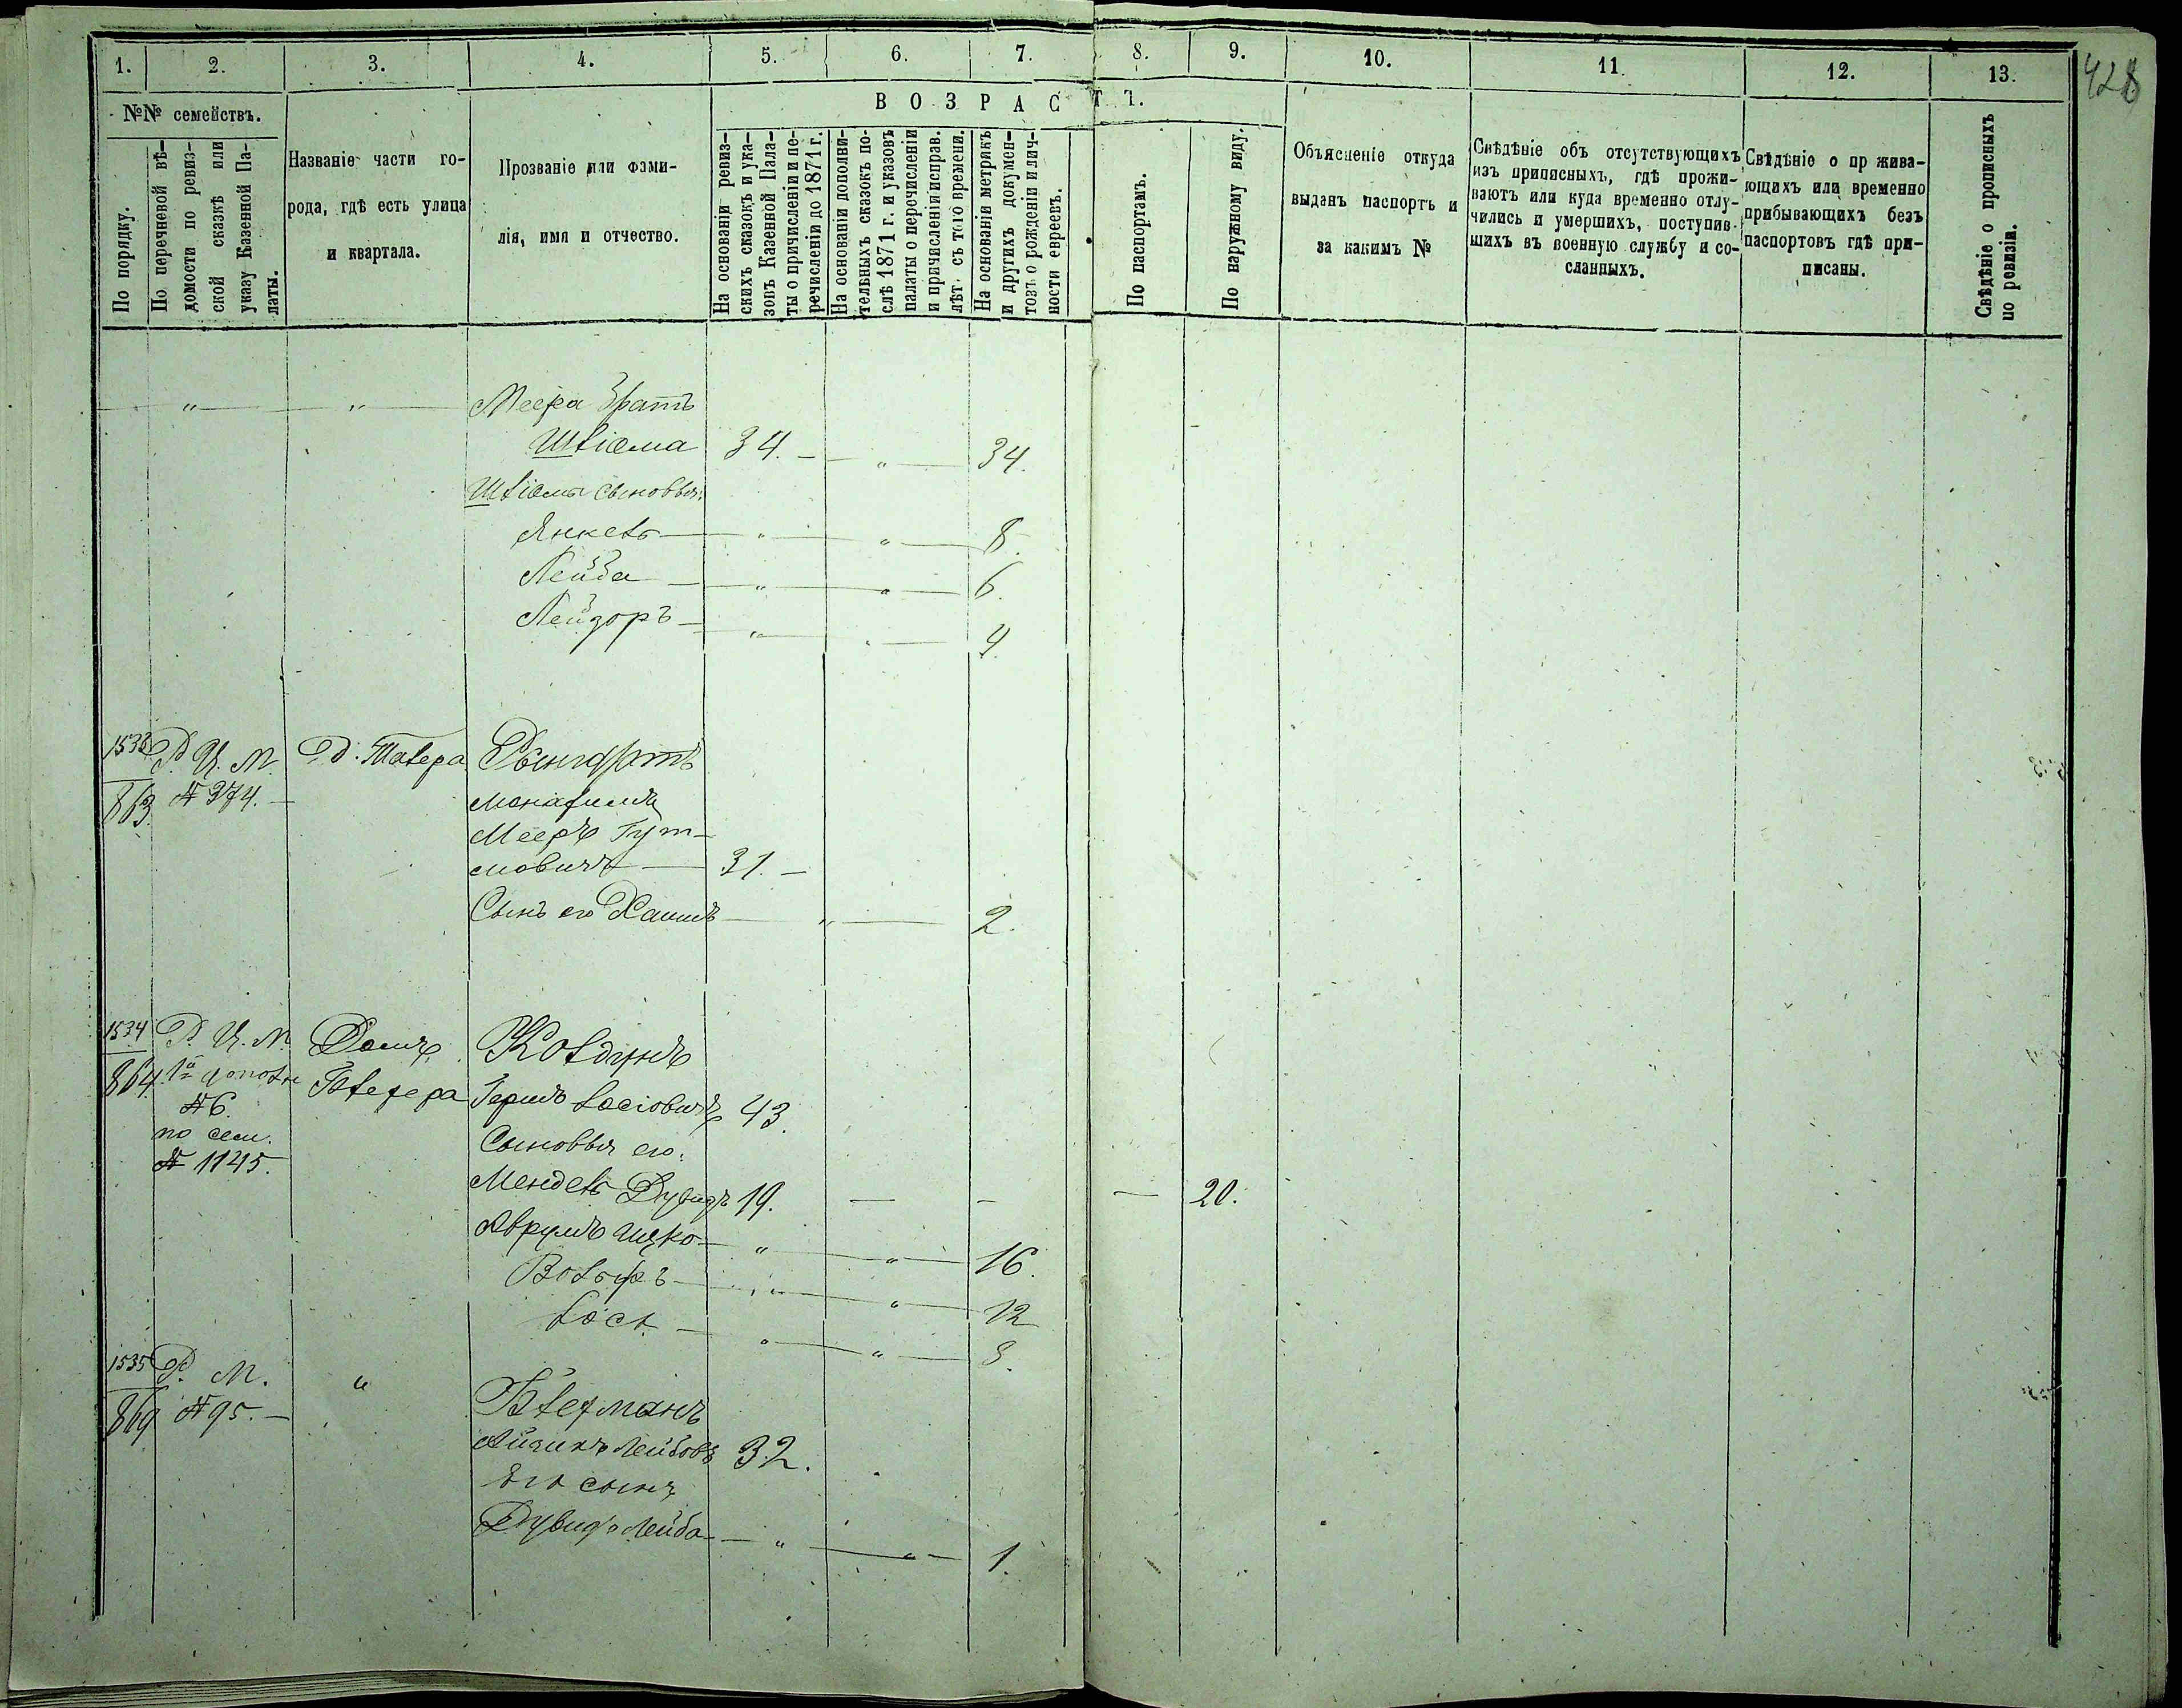 428
1. 2. 3. 4. 5. 6. 7. 8. 9. 10. 11. 12. 13.
№№ семействъ.
По порядку.
По перечневой вѣ-
домости по ревиз-
ской сказкѣ или
указу Казенной Па-
латы.
Названіе части го-
рода, гдѣ есть улица
и квартала.
Прозваніе или фами-
лія, имя и отчество.
ВОЗРАСТЪ.
На основаніи ревиз-
скихъ сказокъ и ука-
зовъ Казенной Пала-
ты о причисленіи и пе-
речисленіи до 1871 г.
На основаніи дополни-
тельныхъ сказокъ по-
слѣ 1871 г. и указовъ
палаты о перечисленіи
и причисленіи исправ.
лѣт. съ того времени.
На основаніи метрикъ
и другихъ докумен-
товъ о рожденіи и лич-
ности евреевъ.
По паспортамъ.
По наружному виду.
Объясненіе откуда
выданъ паспортъ и
за какимъ №
Свѣдѣніе объ отсутствующихъ
изъ приписныхъ, гдѣ прожи-
ваютъ или куда временно отлу-
чились и умершихъ, поступив-
шихъ въ военную службу и со-
сланныхъ.
Свѣдѣніе о пр жива-
ющихъ или временно
прибывающихъ безъ
паспортовъ гдѣ при-
писаны.
Свѣдѣніе о прописныхъ
по ревизіи.
" " Меера братъ
Шліома 34. " 34.
Шліомы сыновья:
Янкель " " 8.
Лейба " " 6.
Лейзоръ " " 4.
1533 Р. Ц. М. Д.
863. № 374.
Мееръ Гут-
мовичъ 31.
Сынъ его Хаимъ " 2.
1534 Р. Ц. М. Домъ Колдунъ
864. 1й дополн Блехера Гершъ Іосіовичъ 43.
№ 6. Сыновья его:
по сем.
№ 1145.
Мендель Дувидъ 19. — — — 20.
Аврумъ Ицко " " 16.
Вольфъ " " 12
Іось " " 8.
1535 Р. М. " Блехманъ
869 № 95. Айзикъ Лейбовъ 32.
Его сынъ
Дувидъ Лейба " " 1.